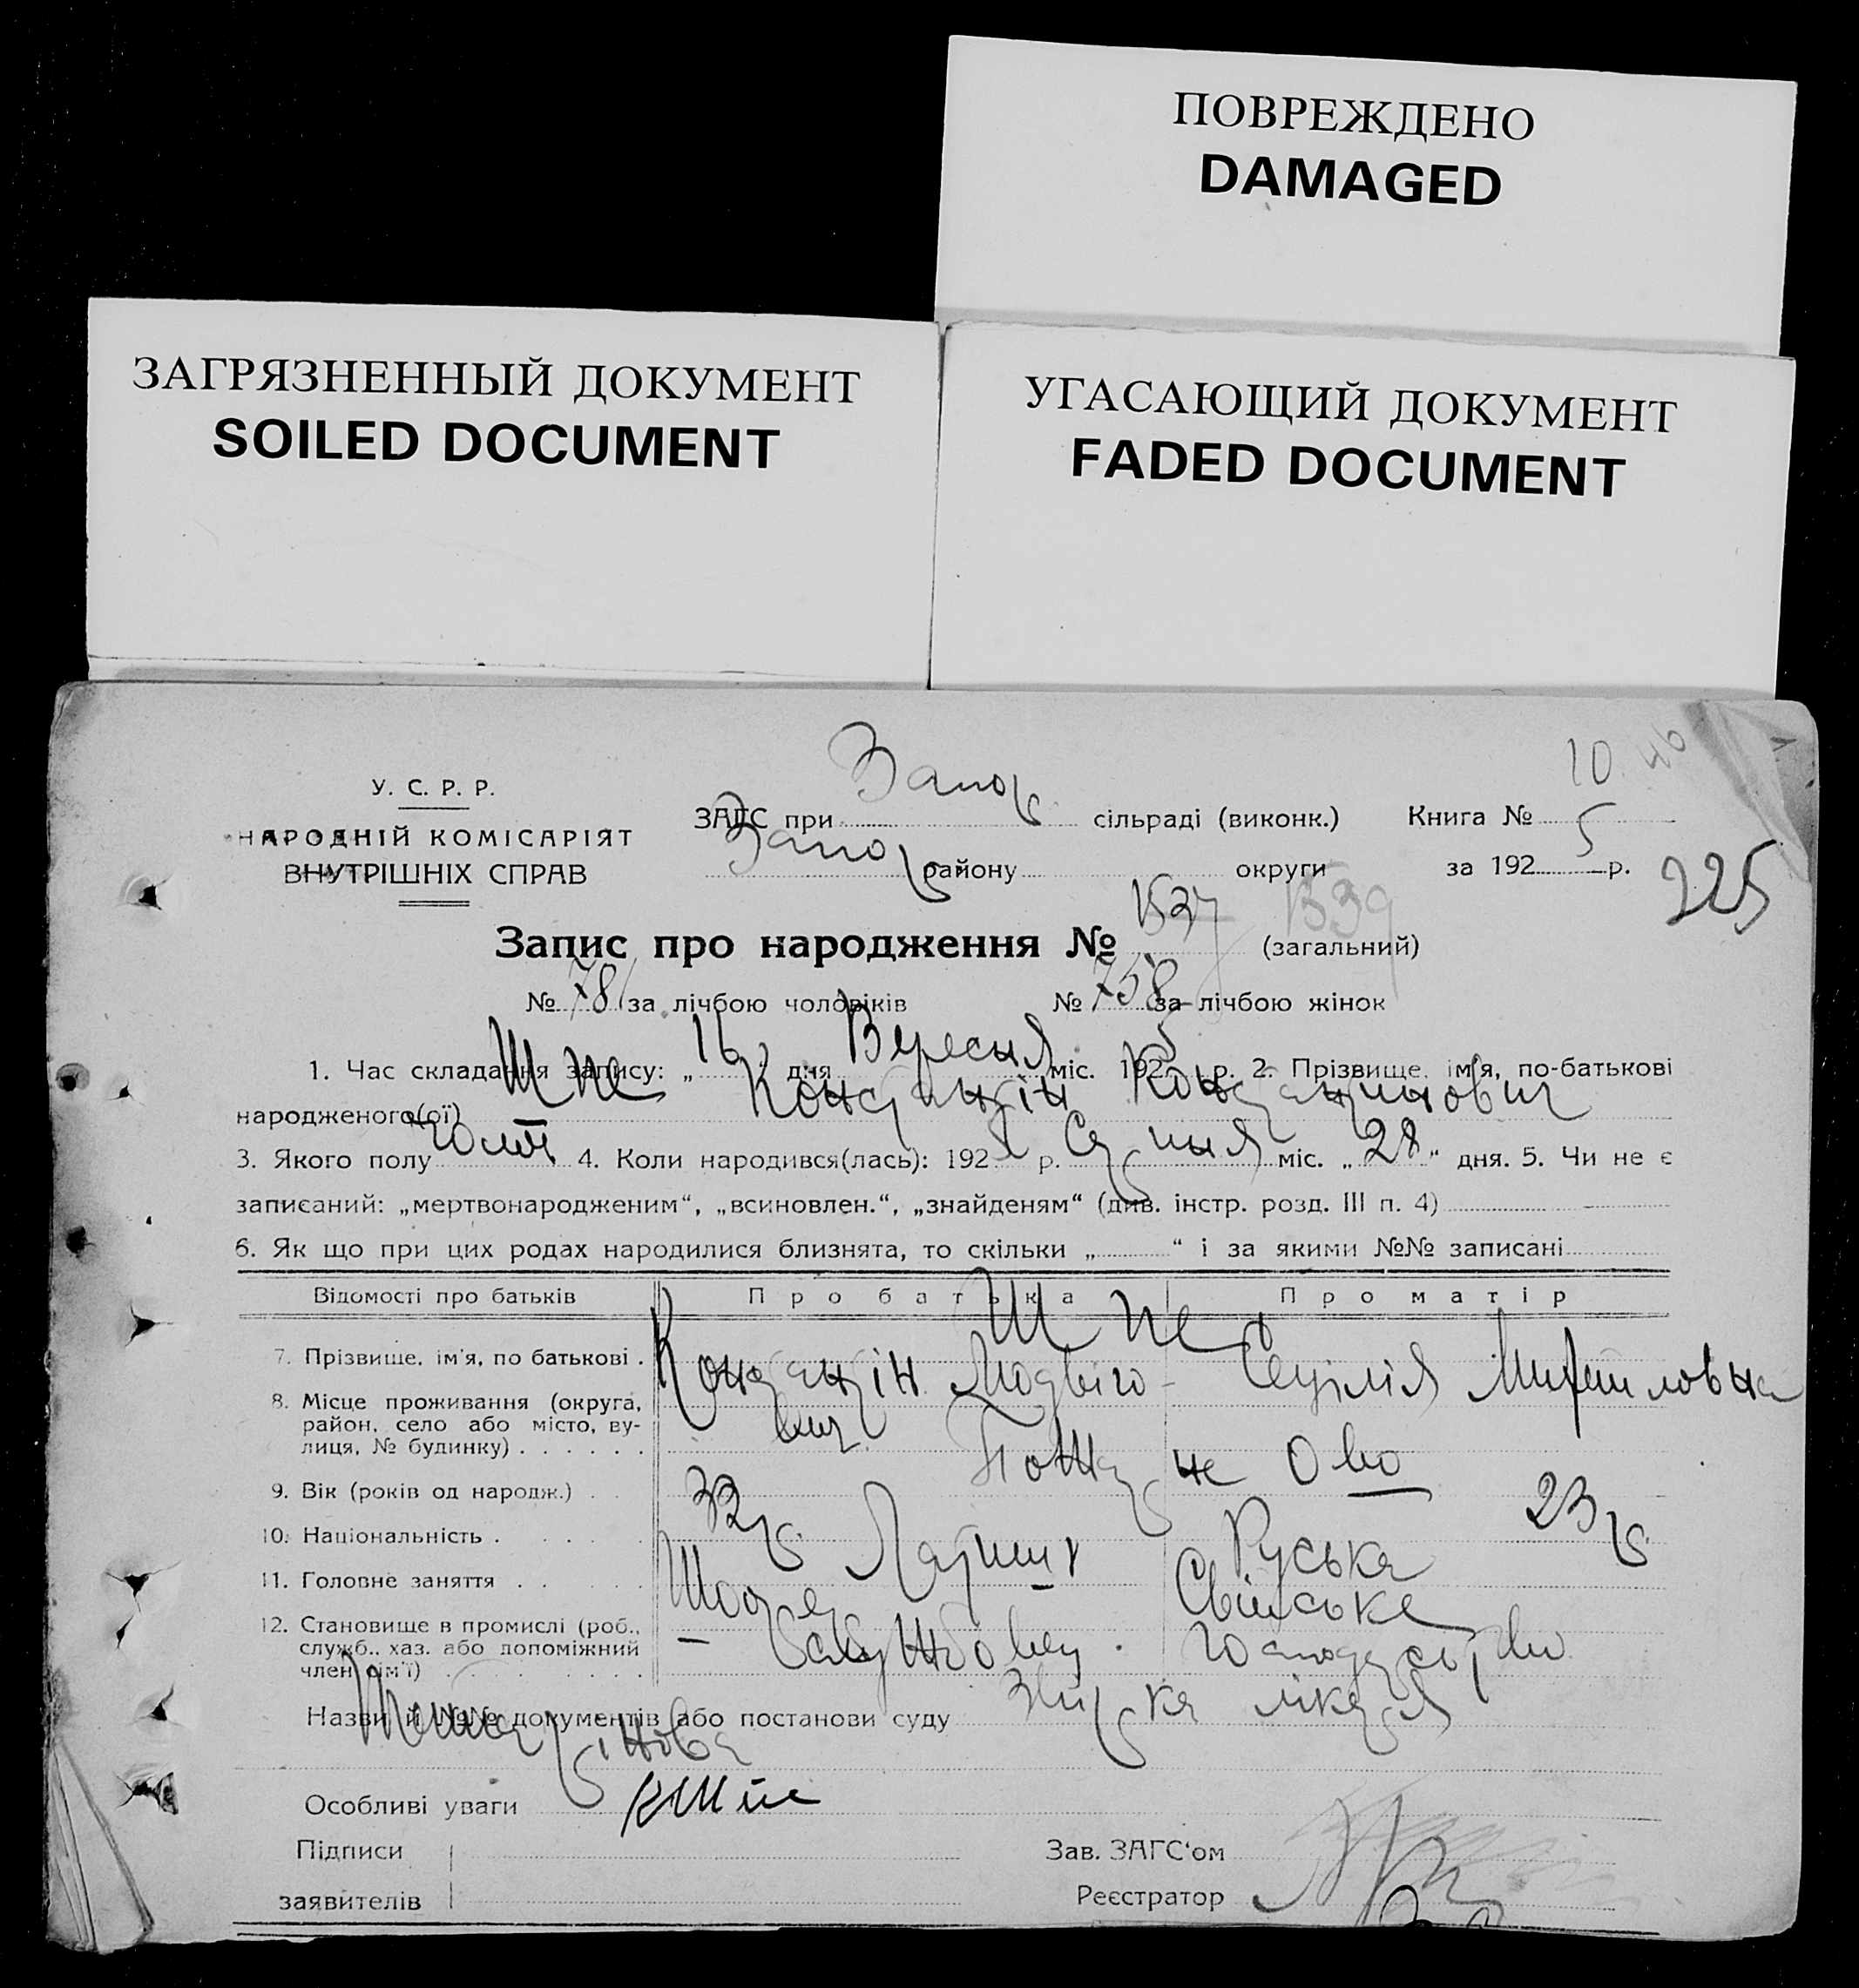 ПОВРЕЖДЕНО
DAMAGED
ЗАГРЯЗНЕННЫЙ ДОКУМЕНТ
SOILED DOCUMENT
УГАСАЮЩИЙ ДОКУМЕНТ
FADED DOCUMENT
10
У. С. Р. Р.
НАРОДНІЙ КОМІСАРІЯТ
ВНУТРІШНІХ СПРАВ
ЗАГС при Запор. сільраді (виконк.) Книга №
Запор району округи за 192 5 р.
225
Запис про народження № 1537 1539 (загальний)
№ 781 за лічбою чоловіків № 758 за лічбою жінок
1. Час складання запису: „ 16 " дня Вересня міс. 192 5 р. 2. Прізвище, ім'я, по-батькові
народженого(ої) Шпе Констянтін Констянтинович
3. Якого полу 4. Коли народився(лась): 192 р. Серпня міс. „ 28 “ дня. 5. Чи не є
записаний: „мертвонародженим“, „всиновлен.“, „знайденям“ (див. інстр. розд. III п. 4)
6. Як що при цих родах народилися близнята, то скільки „ “ і за якими №№ записані
Відомості про батьків Про батька Про матір
Шпе
7. Прізвище, ім'я, по батькові . Констянтін Людвіго- Сецілія Михайловна
вич
8. Місце проживання (округа,
район, село або місто, ву-
лиця, № будинку) . . . . . .
9. Вік (років од народж.) . . 32 р. 23 р.
10. Національність . . . . . Латиш Руська
11. Головне заняття . . . . . Свійське
12. Становище в промислі (роб.,
служб., хаз. або допоміжний
член сім'ї) . . . . . . . — Службовец. господарство
Назви й №№ документів або постанови суду
Особливі уваги
Підписи
заявителів
Зав. ЗАГС'ом
Реєстратор